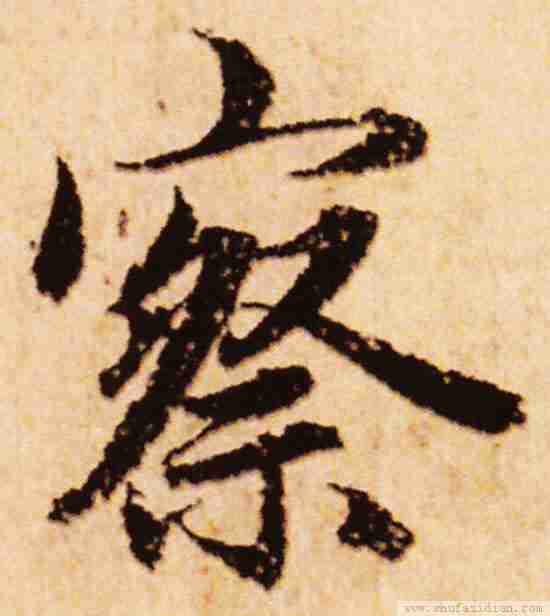 察
www.shufazidian.com